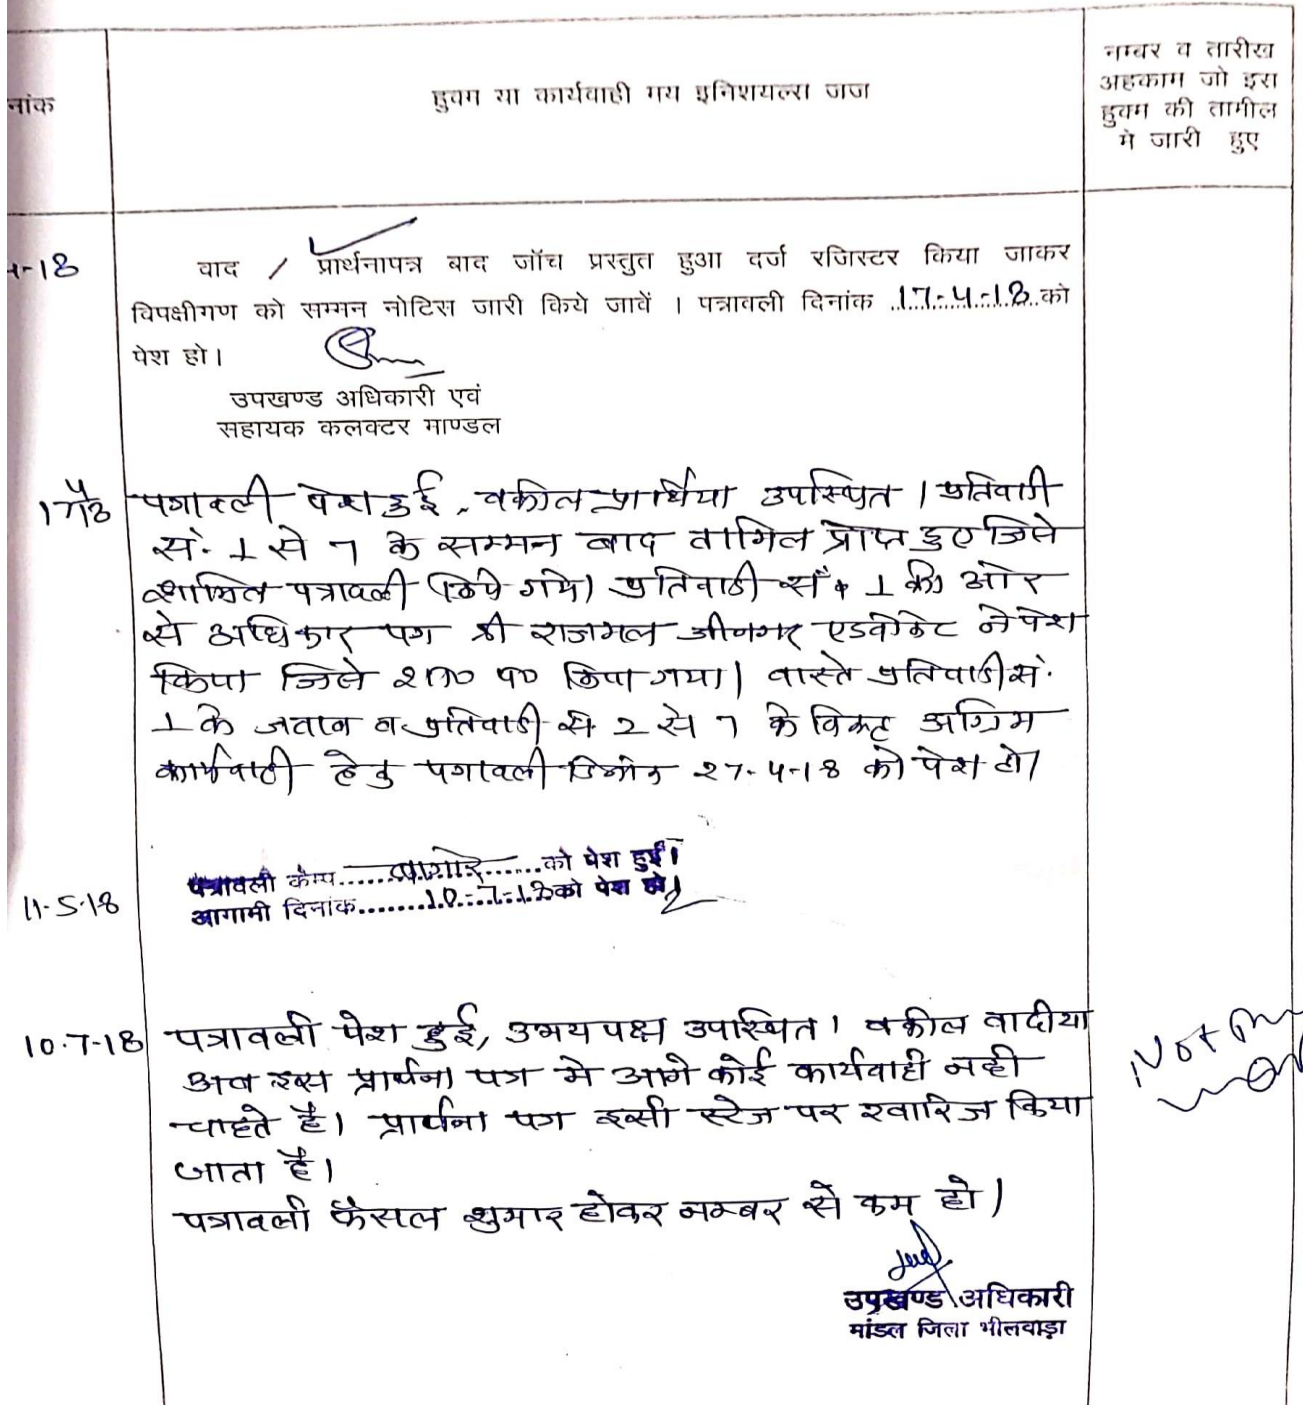 नांक
हुक्म या कार्यवाही मय इनिशयल्स जज
नम्बर व तारीख
अहकाम जो इस
हुक्म की तामील
मे जारी हुए
4-18
वाद / प्रार्थनापत्र बाद जॉच प्रस्तुत हुआ दर्ज रजिस्टर किया जाकर
विपक्षीगण को सम्मन नोटिस जारी किये जावें । पत्रावली दिनांक 17-4-18 को
पेश हो।
उपखण्ड अधिकारी एवं
सहायक कलक्टर माण्डल
पत्रावली पेश हुई, वकील प्रार्थिया उपस्थित । प्रतिवादी
सं. 1 से 7 के सम्मन बाद तामिल प्राप्त हुए जिसे
शामिल पत्रावली किये गये। प्रतिवादी सं. 1 की ओर
से अधिकार पत्र श्री राजमल जीनगर एडवोकेट ने पेश
किया जिसे शा० प० किया गया। वास्ते प्रतिवादी सं.
1 के जवाब व प्रतिवादी सं 2 से 7 के विरूद्ध अग्रिम
कार्यवाही हेतु पत्रावली दिनांक 27-4-18 को पेश हो।
11-5-18
पत्रावली कैम्प बागोर को पेश हुई।
आगामी दिनांक 10-7-18 को पेश हो।
10.7-18
पत्रावली पेश हुई, उभय पक्ष उपस्थित। वकील वादीया
अब इस प्रार्थना पत्र मे आगे कोई कार्यवाही नही
चाहते है। प्रार्थना पत्र इसी स्टेज पर खारिज किया
जाता है।
पत्रावली फैसल शुमार होकर नम्बर से कम हो।
Not
उपखण्ड अधिकारी
मांडल जिला भीलवाड़ा